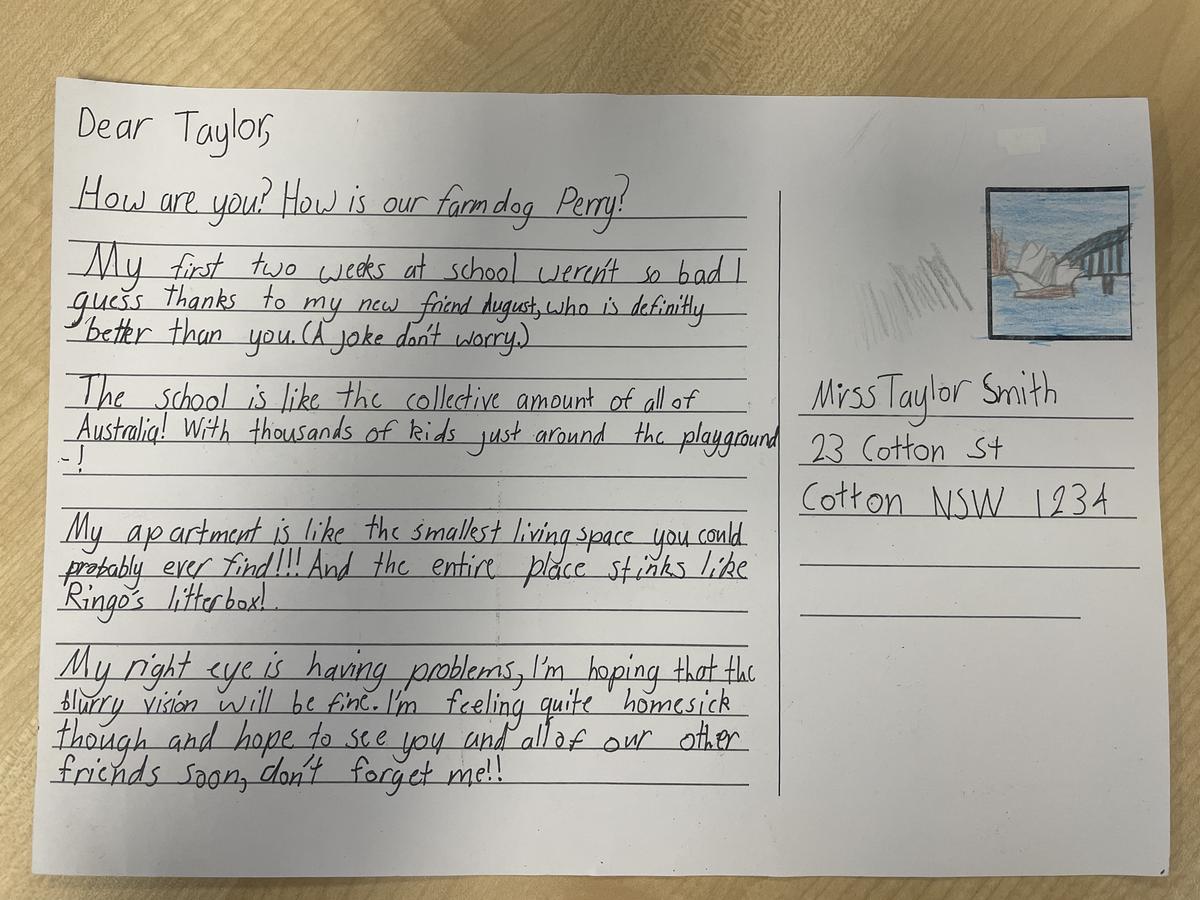 Dear Taylor,
How are you? How is our farm dog Perry?
My first two weeks at school weren't so bad I
guess thanks to my new friend August, who is definitly
better than you. (A joke don't worry.)
The school is like the collective amount of all of
Australia! With thousands of kids just around the playground
-!
My apartment is like the smallest living space you could
probably ever find!!! And the entire place stinks like
Ringo's litterbox!
My right eye is having problems, I'm hoping that the
blurry vision will be fine. I'm feeling quite homesick
though and hope to see you and all of our other
friends soon, don't forget me!!
Miss Taylor Smith
23 Cotton St
Cotton NSW 1234